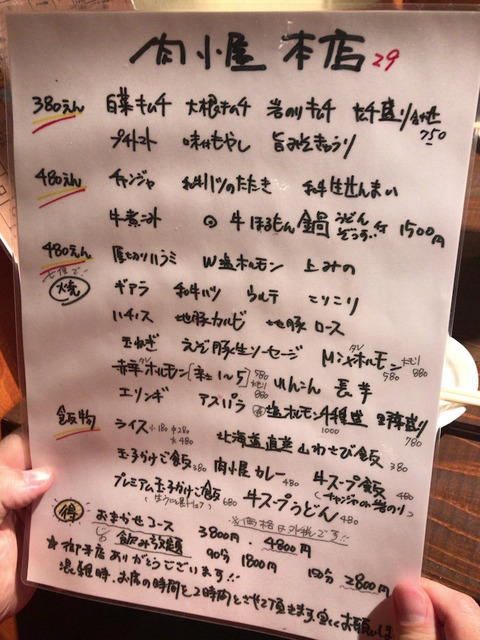 肉小屋 本店 29
380えん 白菜キムチ 大根キムチ 岩のりキムチ キムチ盛り合せ 750
プチトマト 味付もやし 旨みそきゅうり
480えん チャンジャ 和牛ハツのたたき 和牛生せんまい
牛煮こみ 牛ほるもん鍋 うどん ぞうすい付 1500円
480えん 厚切りハラミ W塩ホルモン 上みの
七輪で 焼 ギアラ 和牛ハツ ウルテ コリコリ
ハチノス 地豚カルビ 地豚ロース
玉ねぎ えぞ豚生ソーセージ Mシャホルモン タレ 580 大もり 880
赤辛ホルモン タレ [辛さ1〜5] 580 大もり 880 いんにん 長芋
エリンギ アスパラ 塩ホルモン4種盛 1000 野菜盛り 780
飯物 ライス 小180 中280 大480 北海道直送山わさび飯 380
玉子かけご飯 380 肉小屋カレー 480 牛スープ飯 480
プレミアム玉子かけご飯 680 牛スープうどん 480 (チャンジャor岩のり)
※価格は外税です!!
おまかせコース 3800円・4800円
飲み放題 90分 1800円 150分 2800円
★御来店ありがとうございます!!
混雑時、お席の時間を2時間とさせて頂きます。宜しくお願いしま